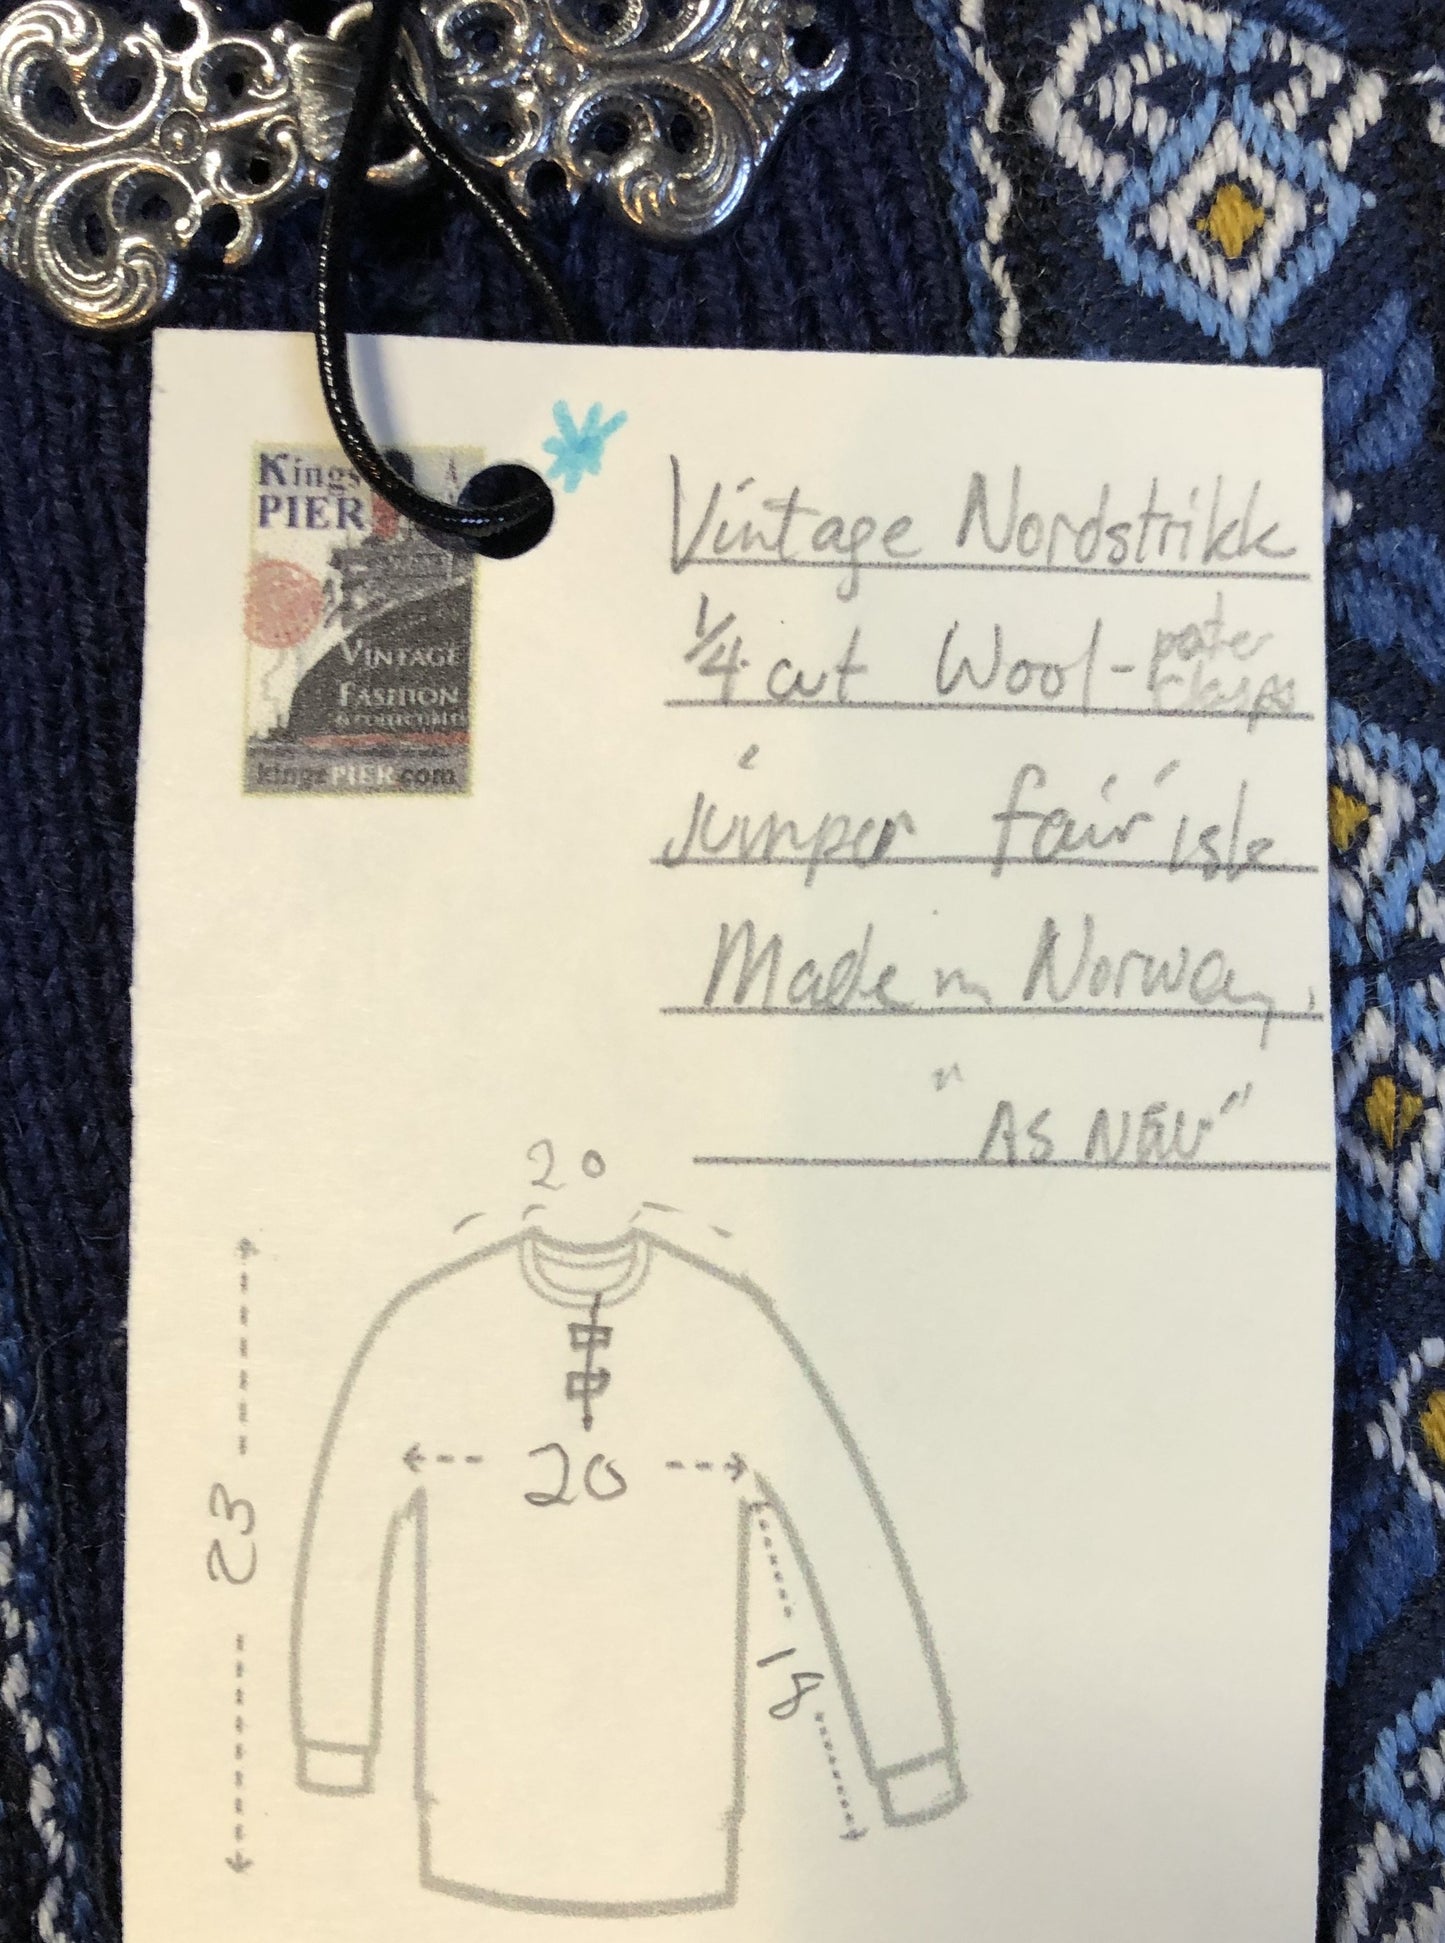 Kings
PIER
VINTAGE
FASHION
& COLLECTIBLES
kingsPIER.com
Vintage Nordstrikk
1/4 cut Wool - pewter
clasps
jumper "fair" isle
Made in Norway.
"AS NEW"
20
20
23
18